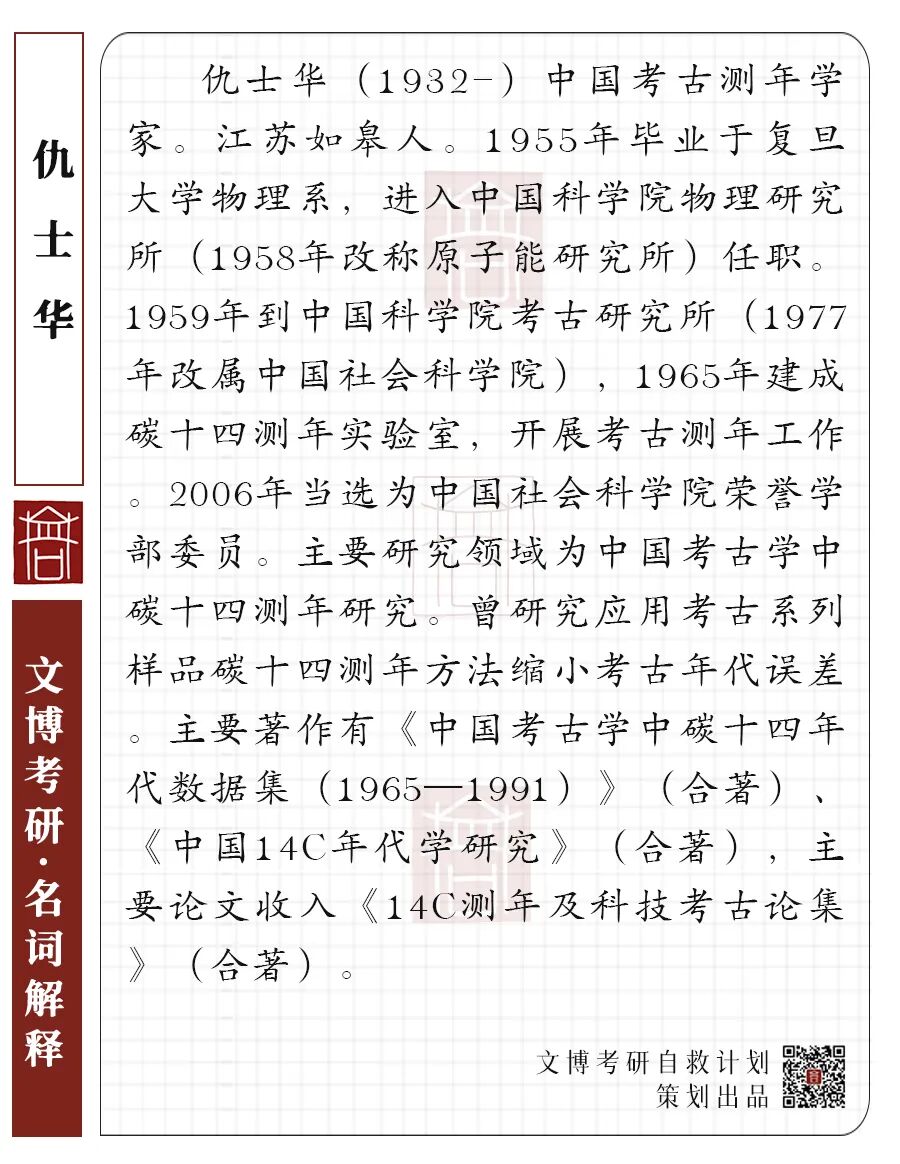 仇士华
文博考研·名词解释
仇士华（1932-）中国考古测年学
家。江苏如皋人。1955年毕业于复旦
大学物理系，进入中国科学院物理研究
所（1958年改称原子能研究所）任职。
1959年到中国科学院考古研究所（1977
年改属中国社会科学院），1965年建成
碳十四测年实验室，开展考古测年工作
。2006年当选为中国社会科学院荣誉学
部委员。主要研究领域为中国考古学中
碳十四测年研究。曾研究应用考古系列
样品碳十四测年方法缩小考古年代误差
。主要著作有《中国考古学中碳十四年
代数据集（1965—1991）》（合著）、
《中国14C年代学研究》（合著），主
要论文收入《14C测年及科技考古论集
》（合著）。
文博考研自救计划
策划出品